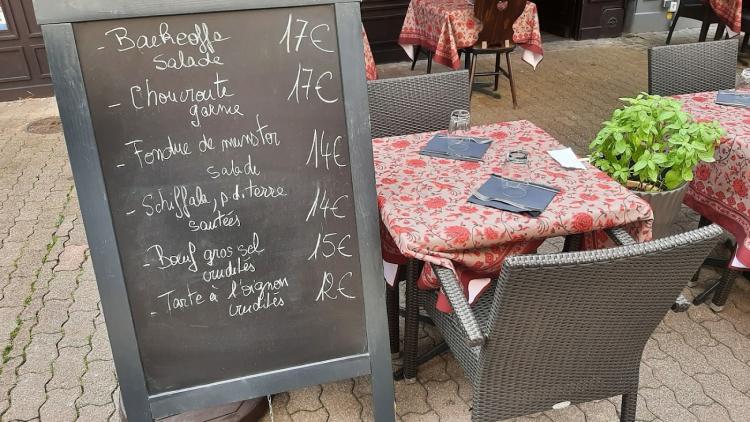 - Baekeoffe 17€
salade
- Choucroute 17€
garnie
- Fondue de munster 14€
salade
- Schiffala, p d. terre 14€
sautées
- Bœuf gros sel 15€
crudités
- Tarte à l'oignon 12€
crudités